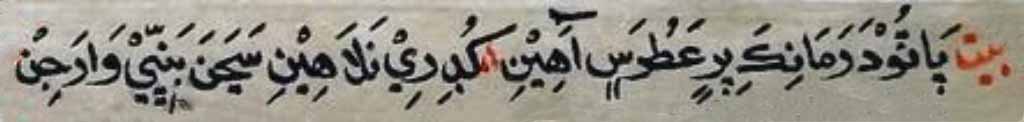 بيت پَاتُوْدَرَمَانِكَ پِرٍ عَطُرَسٍ آهِيْنِ اكُبِدِرِيْ نَلَاهِيْنِ سَيَحَنَ بَنِيِّيْ وَارَجِنْ